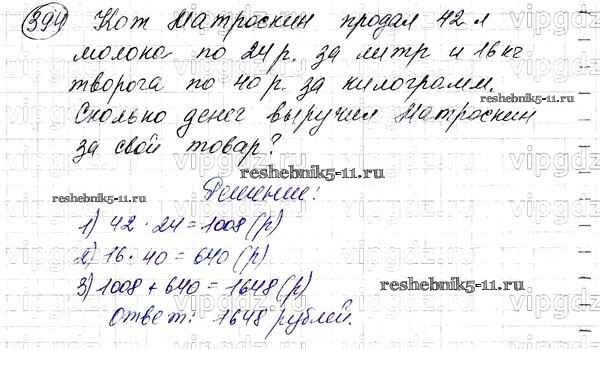 394 Кот Матроскин продал 42 л
молока по 24 р. за литр и 16 кг
творога по 40 р. за килограмм.
reshebnik5-11.ru
Сколько денег выручил Матроскин
за свой товар?
reshebnik5-11.ru
Решение:
reshebnik5-11.ru
1) 42 · 24 = 1008 (р)
2) 16 · 40 = 640 (р)
3) 1008 + 640 = 1648 (р)
reshebnik5-11.ru
Ответ: 1648 рублей.